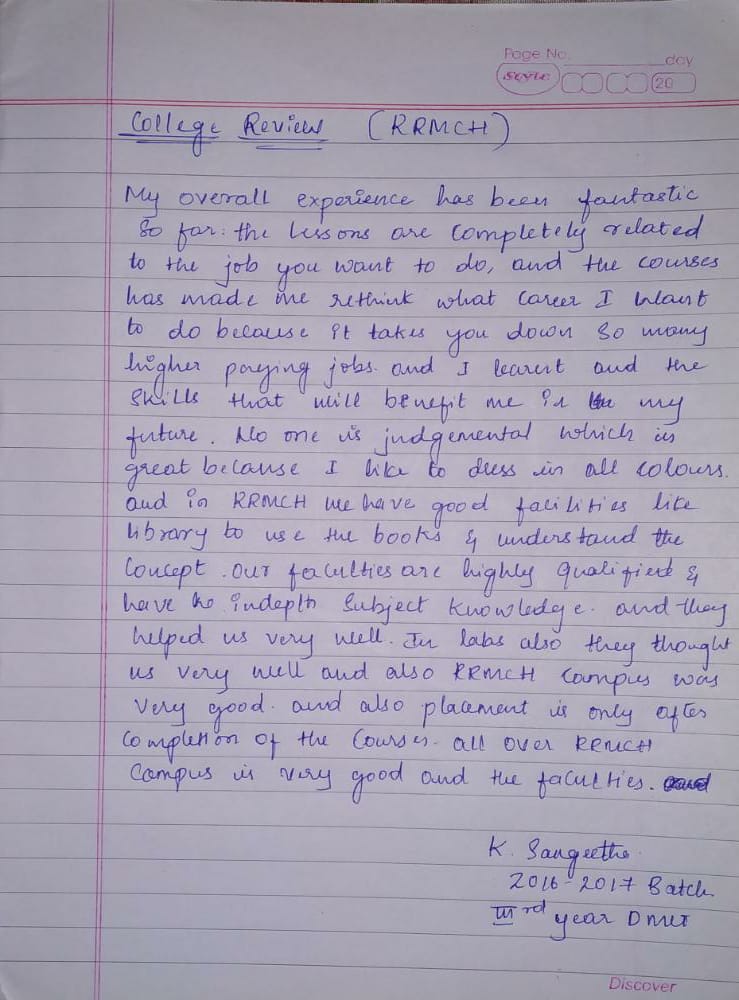 Page No. day
Style 20
College Review (RRMCH)
My overall experience has been fantastic
So far: the lessons are completely related
to the job you want to do, and the courses
has made me rethink what career I want
to do because it takes you down so many
higher paying jobs. and I learnt and the
skills that will benefit me in my
future. No one is judgemental which is
great because I like to dress in all colours.
and in RRMCH we have good facilities like
library to use the books & understand the
Concept. Our faculties are highly qualified &
have indepth Subject Knowledge. and they
helped us very well. In labs also they thought
us very well and also RRMCH Campus was
very good. and also placement is only after
Completion of the Courses. all over RRMCH
Campus is very good and the faculties.
K. Sangeetha.
2016-2017 Batch
IIIrd year DMLT
Discover